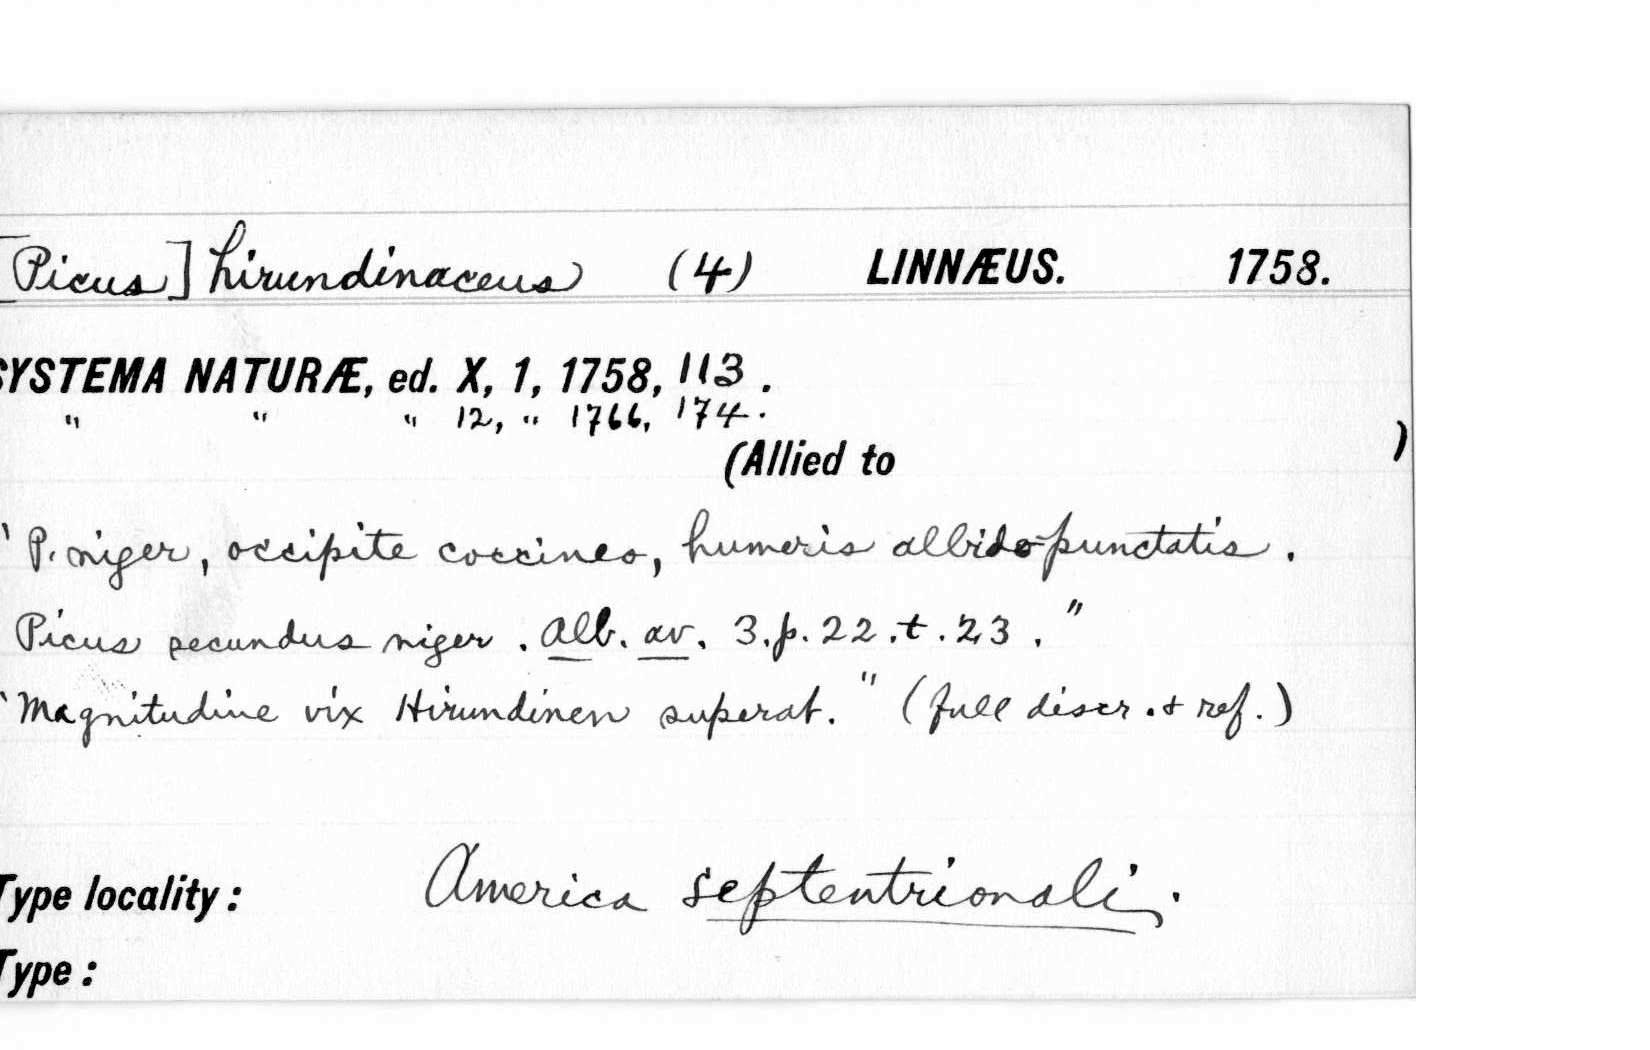 [Picus] hirundinaceus (4) LINNÆUS. 1758.
SYSTEMA NATURÆ, ed. X, 1, 1758, 113.
" " " 12, " 1766, 174.
(Allied to )
" P. niger, occipite coccineo, humeris albido punctatis.
Picus secundus niger. Alb. av. 3. p. 22. t. 23."
"Magnitudine vix Hirundinen superat." (full discr. & ref.)
Type locality: America septentrionali.
Type: